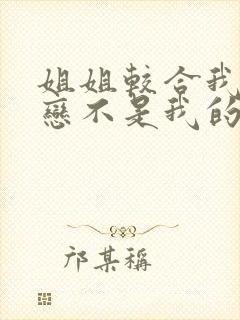 姐姐較合我
戀不是我的
邝某稱